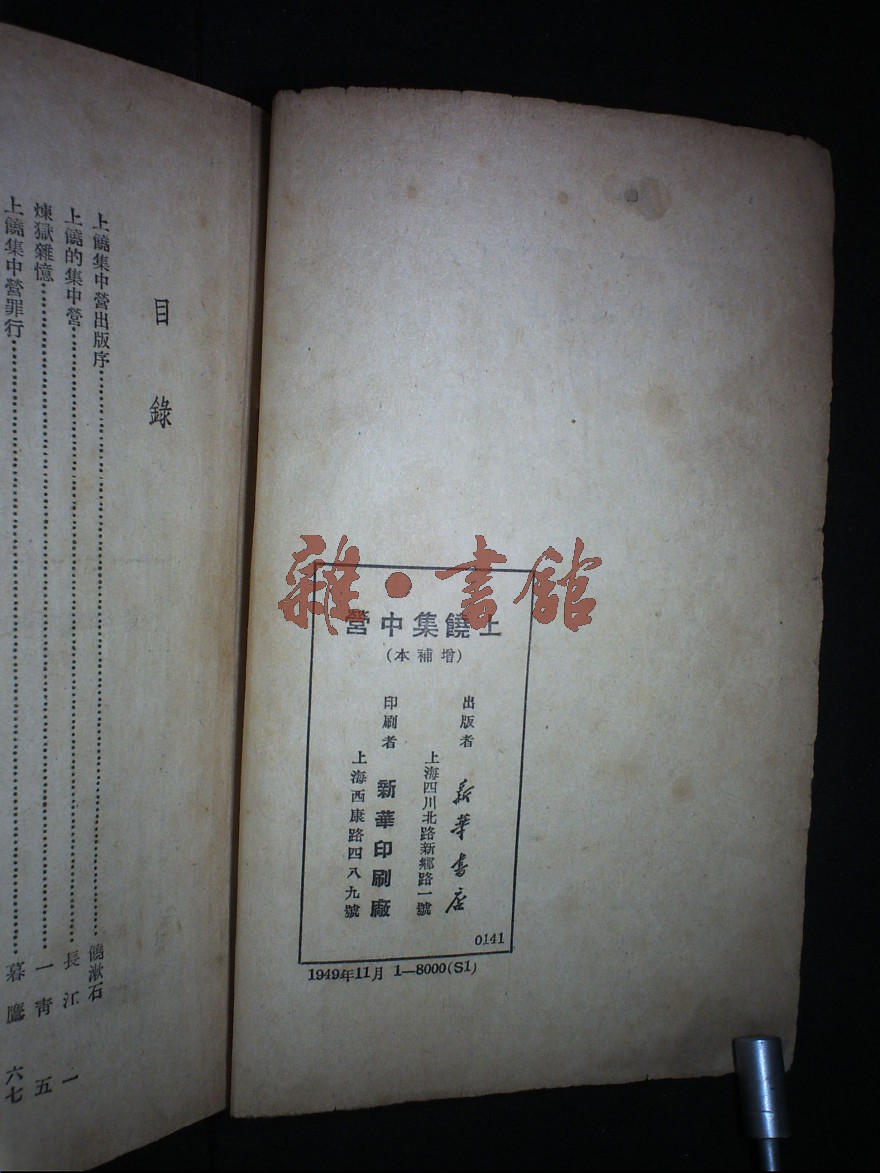 雜·書館
上饒集中營
(增補本)
出版者 新華書店
上海四川北路新鄉路一號
印刷者 新華印刷廠
上海西康路四八九號
0141
1949年11月 1—8000(S1)
目錄
上饒集中營出版序 饒漱石
上饒的集中營 長江 一
煉獄雜憶 一靑 五
上饒集中營罪行 暮鷹 六七